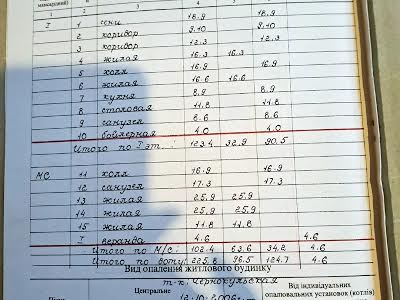 мансардний)
1 2 3 4 5 6
I 1 сени 18.9 18.9
2 коридор 9.10 9.10
3 коридор 12.3 12.3
4 жилая 16.3 16.3
5 холл 16.9 16.9
6 жилая 16.6 16.6
7 кухня 8.9 8.9
8 столовая 11.8 11.8
9 санузел 8.6 8.6
10 бойлерная 4.0 4.0
Итого по I эт.: 123.4 32.9 90.5
М/С 11 холл 16.9 16.9
12 санузел 17.3 17.3
13 жилая 25.9 25.9
14 жилая 25.9 25.9
15 жилая 11.8 11.8
I веранда 4.6 4.6
Итого по М/С: 102.4 63.6 34.2 4.6
Итого по 225.8 96.5 124.7 4.6
Вид опалення житлового будинку
Центральне
Від індивідуальних
опалювальних установок (котлів)